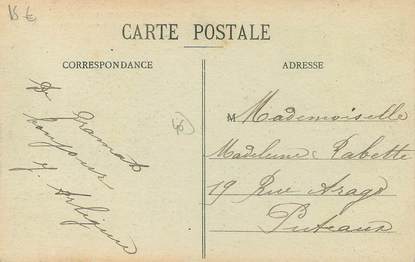 15 €
CARTE POSTALE
CORRESPONDANCE
ADRESSE
De Gramat
bonjour
M Mademoiselle
Madeleine Rabette
19 Rue Arago
Puteaux